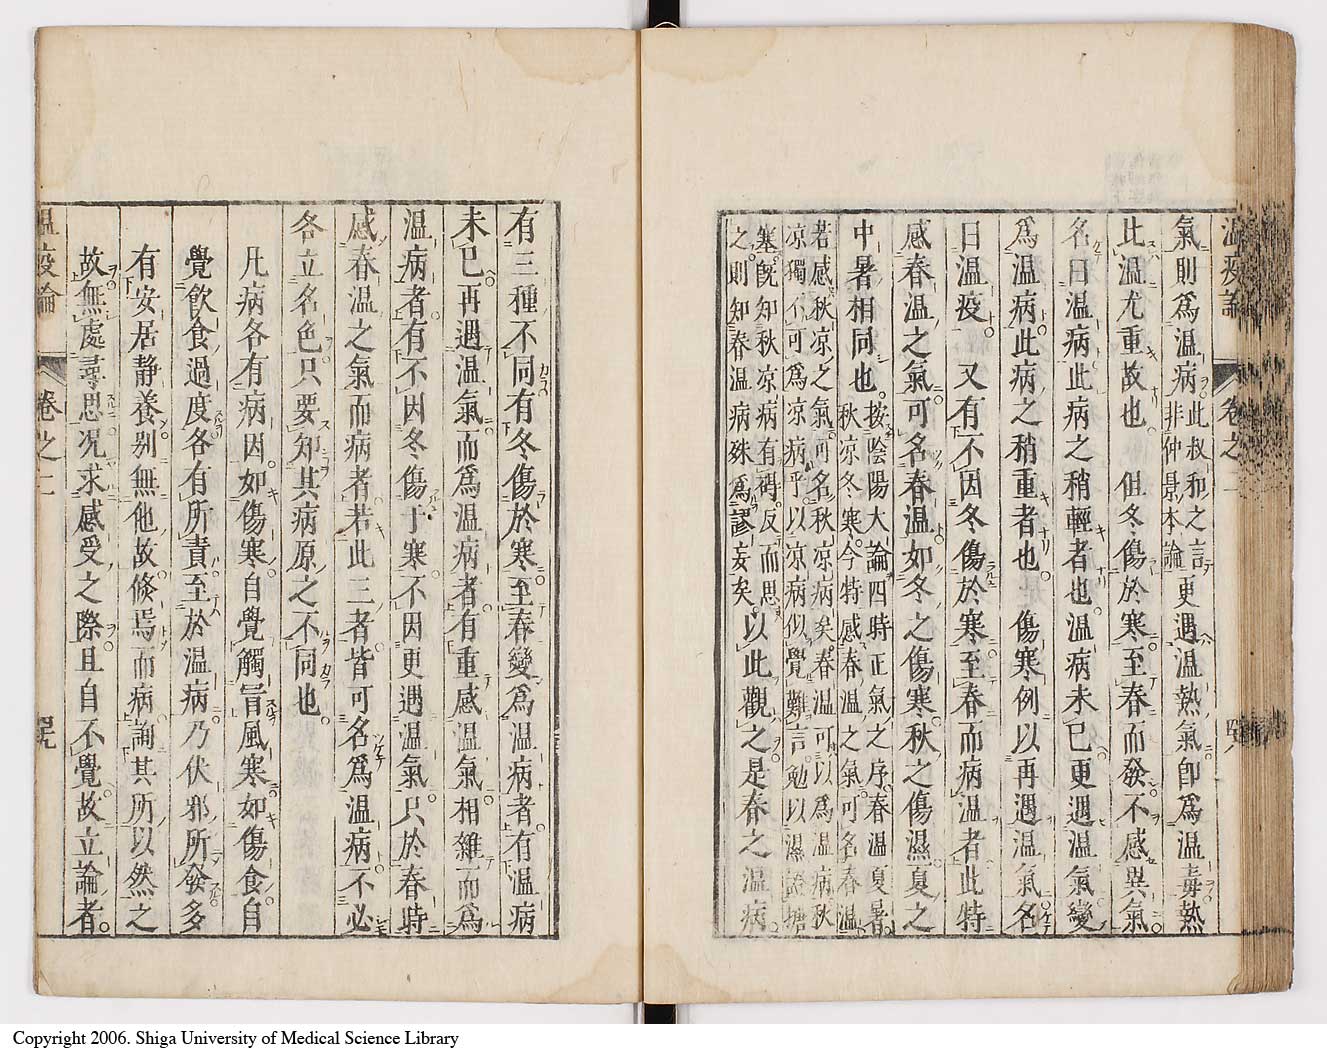 温疫論 卷之二
氣則爲温病此叔和之言非仲景本論更遇温熱氣卽爲温毒熱
此温尤重故也 但冬傷於寒至春而發不感異氣
名曰温病此病之稍輕者也温病未已更遇温氣變
爲温病此病之稍重者也 傷寒例以再遇温氣名
曰温疫 又有不因冬傷於寒至春而病温者此特
感春温之氣可名春温如冬之傷寒秋之傷濕夏之
中暑相同也按陰陽大論四時正氣之序春温夏暑
秋凉冬寒今特感春温之氣可名春温
若感秋凉之氣可名秋凉病矣春温可以爲温病秋
凉獨不可爲凉病乎以凉病似覺難言勉以濕證搪
塞旣知秋凉病有碍反而思
之則知春温病殊爲謬妄矣以此觀之是春之温病
有三種不同有冬傷於寒至春變爲温病者有温病
未已再遇温氣而爲温病者有重感温氣相雜而爲
温病者有不因冬傷于寒不因更遇温氣只於春時
感春温之氣而病者若此三者皆可名爲温病不必
各立名色只要知其病原之不同也
凡病各有病因如傷寒自覺觸冒風寒如傷食自
覺飮食過度各有所責至於温病乃伏邪所發多
有安居静養别無他故倐焉而病詢其所以然之
故無處尋思况求感受之際且自不覺故立論者
温疫論 卷之二